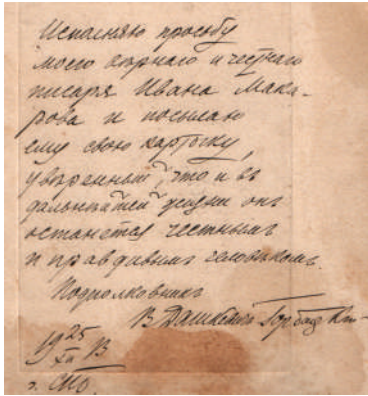 Исполняю просьбу
моего вѣрнаго и честнаго
писаря Ивана Мака-
рова и посылаю
ему свою карточку,
увѣренный, что и въ
дальнѣйшей жизни онъ
останется честнымъ
и правдивымъ человѣкомъ.
Подполковникъ
В Дашкевичъ Горбацкій
19 25/XII В
г. СПб.